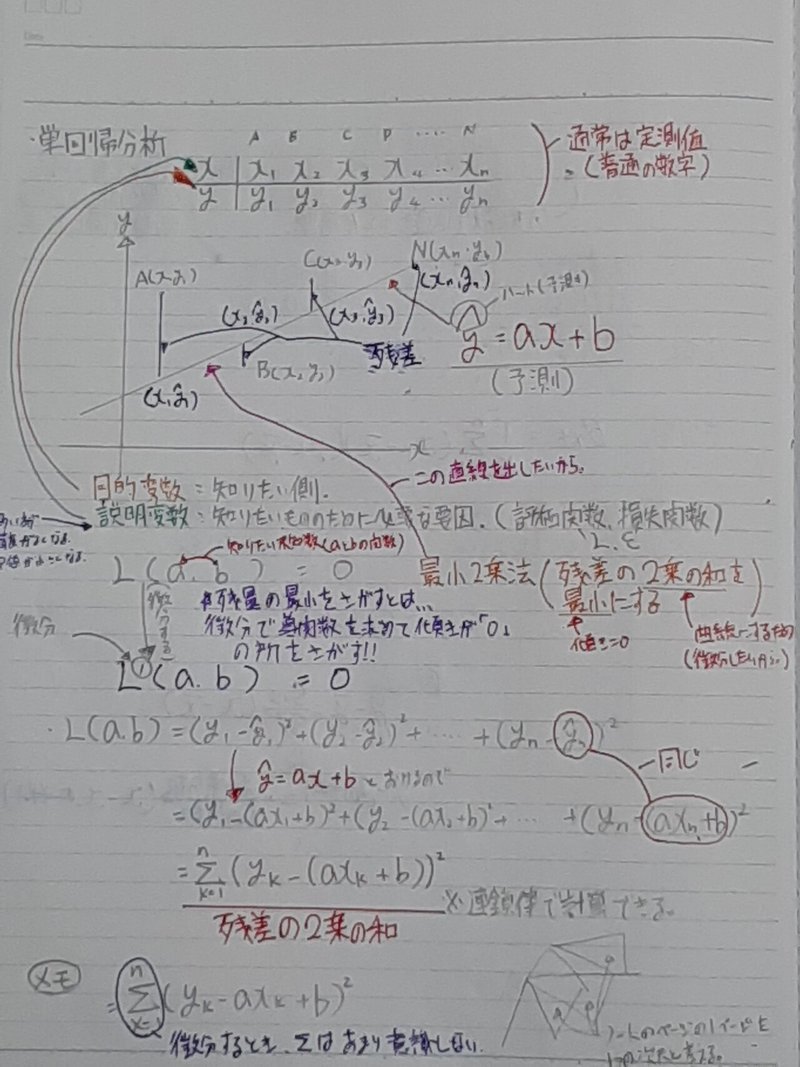 ・単回帰分析
A B C D ‥‥ N
x x₁ x₂ x₃ x₄ ‥ xₙ
y y₁ y₂ y₃ y₄ ‥ yₙ
通常は定測値
(普通の数字)
y
A(x₁y₁)
C(x₃,y₃)
(xₙ,ŷₙ)
(x₂,ŷ₂)
(x₃,ŷ₃)
残差
B(x₂,y₂)
(x₁ŷ₁)
x
ハット(予測)
ŷ=ax+b
(予測)
この直線を出したいから。
目的変数:知りたい側.
説明変数:知りたいもののために必要な要因.
(評価関数、損失関数)
L.ε
知りたい未知数(aとbの関数)
L(a.b)=0
最小2乗法(残差の2乗の和を
最小にする)
傾き=0
曲線にするため
(微分したいから)
微分
微分する
残差の最小をさがすとは...
微分で導関数を求めて傾きが「0」
の所をさがす!!
L'(a.b)=0
・L(a.b)=(y₁-ŷ₁)²+(y₂-ŷ₂)²+‥‥+(yₙ-ŷₙ)²
ŷ=ax+bとおけるので
同じ
=(y₁-(ax₁+b)²+(y₂-(ax₂+b)²+‥‥+(yₙ-(axₙ+b)²
=Σₖ₌₁ⁿ(yₖ-(axₖ+b))²
残差の2乗の和
※連鎖律で計算できる。
メモ
=Σₖ₌₁ⁿ(yₖ-axₖ+b)²
微分するとき、Σはあまり意識しない.